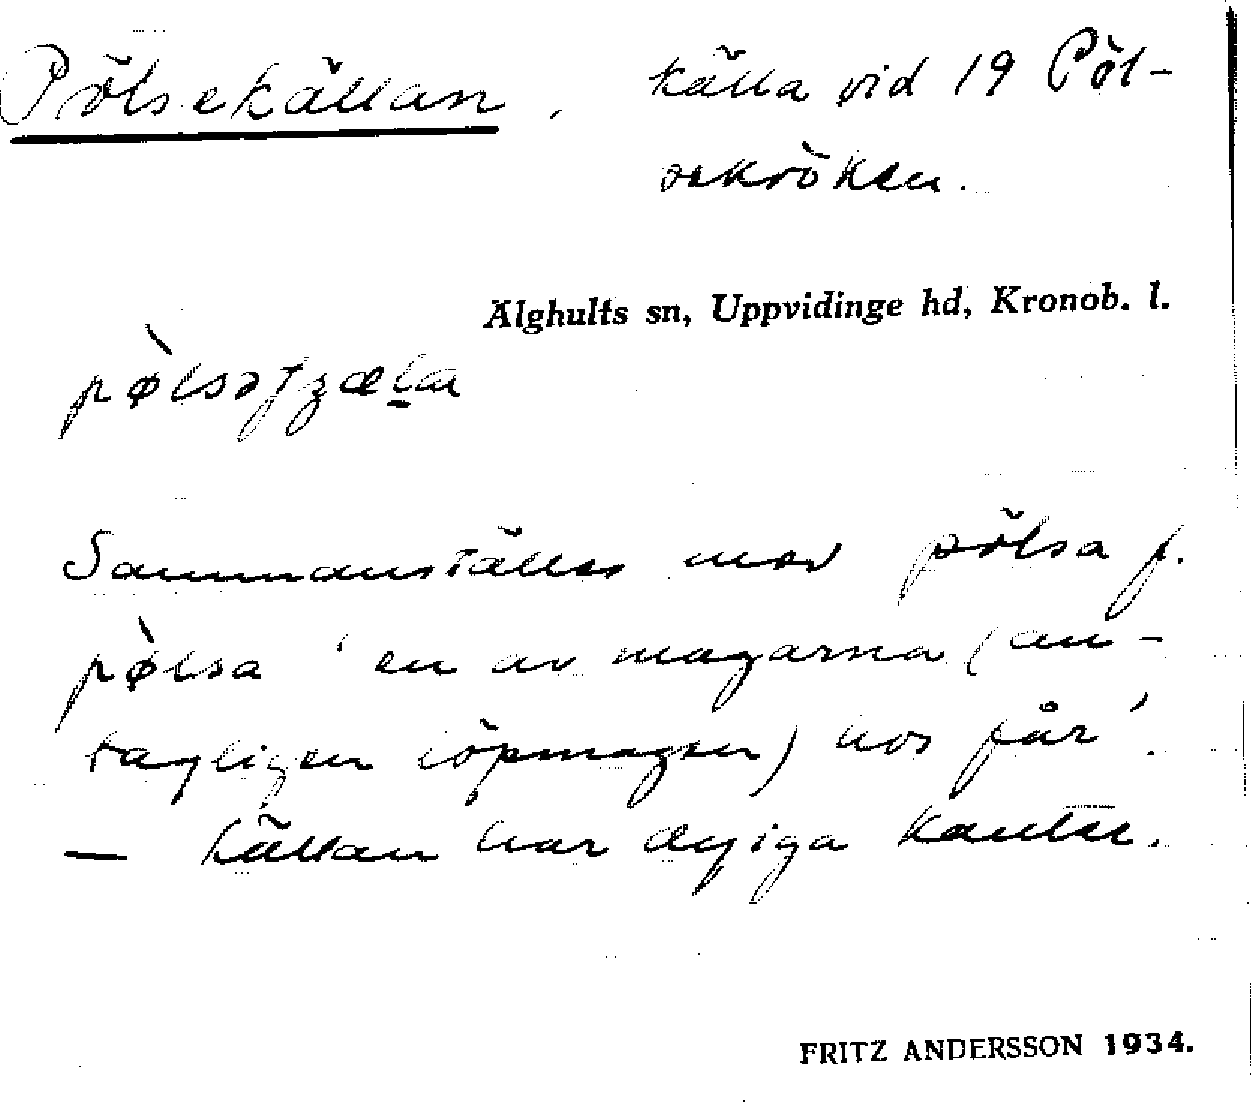 Pölsekällan, källa vid 19 Pöl-
sekröken.
Älghults sn, Uppvidinge hd, Kronob. l.
Sammanställes med pölsa f.
pø̀lsa 'en av magarna (an-
tagligen löpmagen) hos får'.
— Källan har dyiga kanter.
FRITZ ANDERSSON 1934.